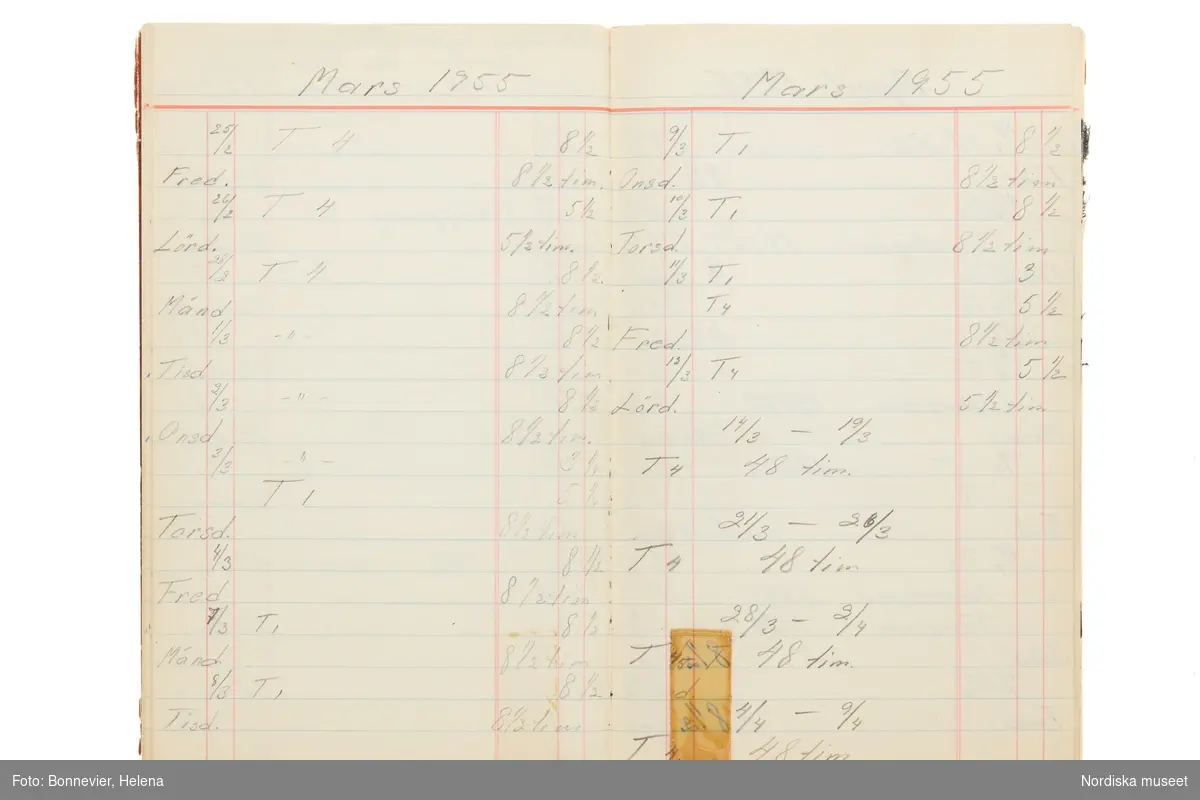 Mars 1955
25/2 T 4 8 1/2
Fred. 8 1/2 tim.
26/2 T 4 5 1/2
Lörd. 5 1/2 tim.
T 4 8 1/2.
Månd 8 1/2 tim
1/3 -"- 8 1/2
Tisd 8 1/2 tim.
2/3 -"- 8 1/2
Onsd 8 1/2 tim.
3/3 -"- 3
T 1 5 1/2
Torsd. 8 1/2 tim
4/3 8 1/2
Fred 8 1/2 tim
7/3 T1 8 1/2
Månd. 8 1/2 tim
8/3 T1 8 1/2
Tisd. 8 1/2 tim
Mars 1955
9/3 T1 8 1/2
Onsd. 8 1/2 tim
10/3 T1 8 1/2
Torsd. 8 1/2 tim
11/3 T1 3
T4 5 1/2
Fred. 8 1/2 tim
12/3 T4 5 1/2
Lörd. 5 1/2 tim
14/3 — 19/3
T4 48 tim.
21/3 — 26/3
T 4 48 tim
28/3 — 2/4
T 48 tim.
4/4 — 9/4
T 4. 48 tim
Foto: Bonnevier, Helena
Nordiska museet